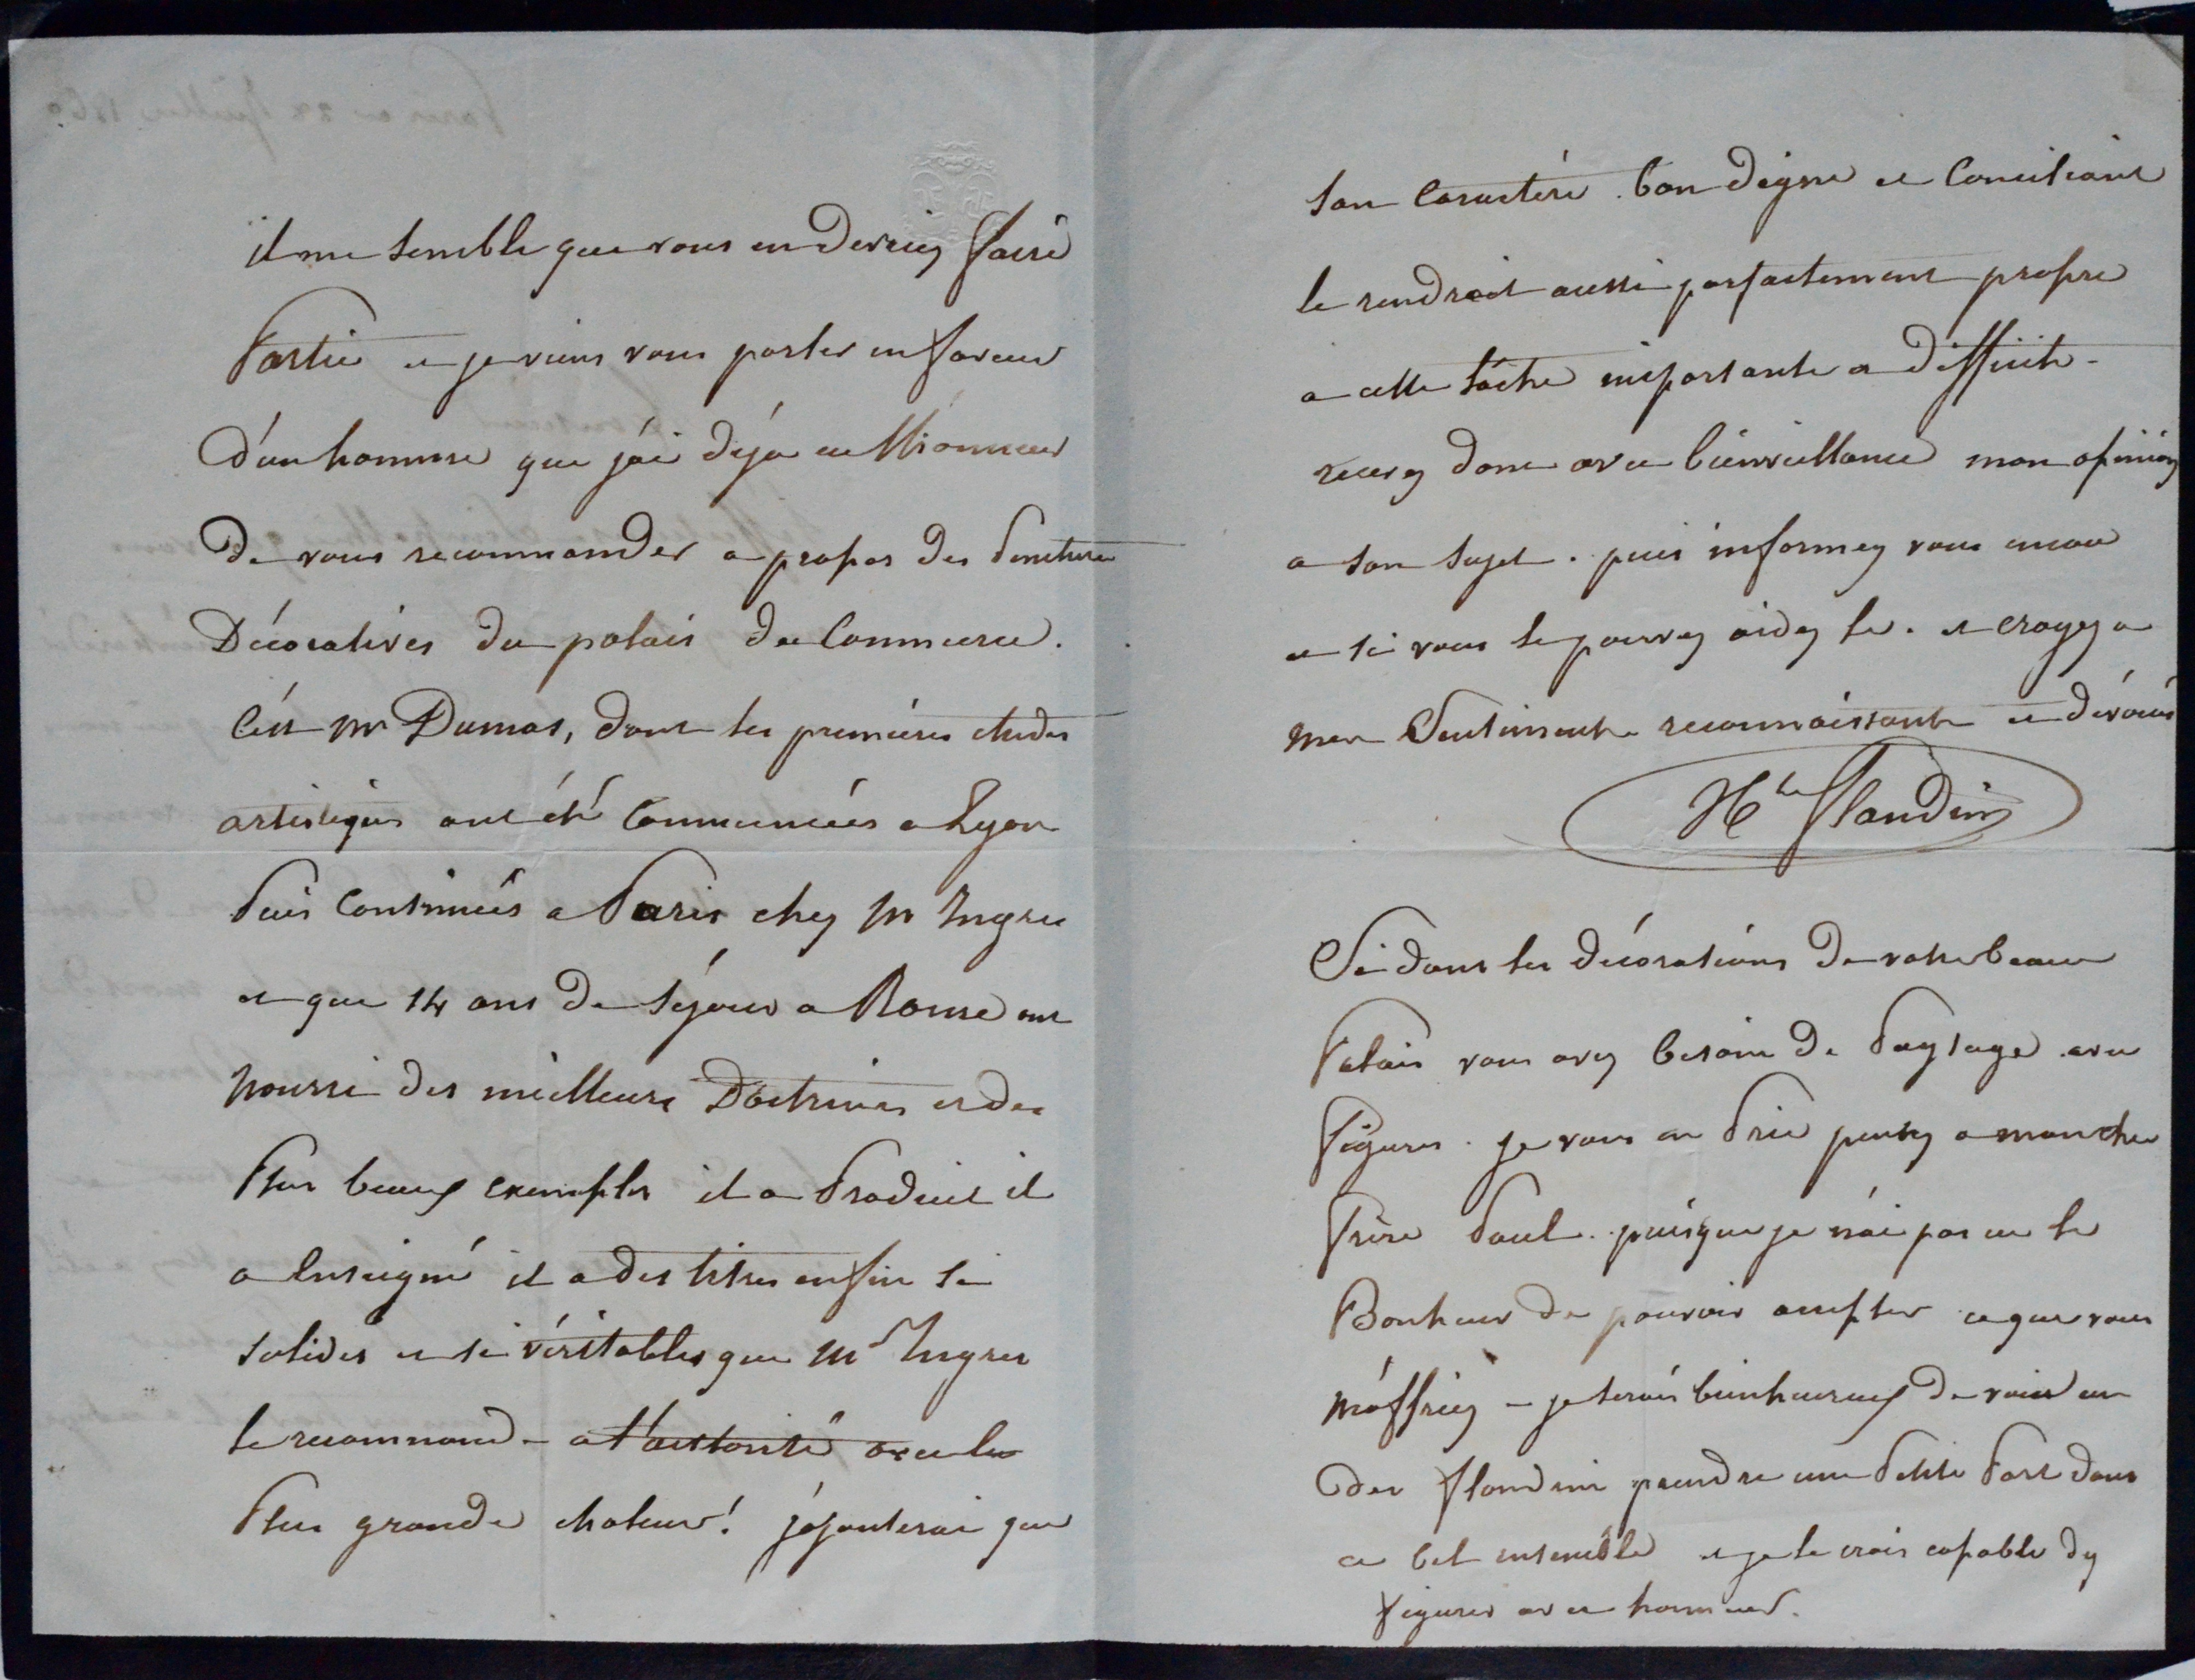 il me semble que vous en devriez faire
Partie et je viens vous parler en faveur
d'un homme que j'ai déja eu l'honneur
De vous recommander a propos des Peintures
Décoratives du palais du Commerce.
C'est Mr Dumas, dont les premières études
artistiques ont été Commencées a Lyon
Puis Continuées a Paris chez Mr Ingres
et que 14 ans De séjour a Rome ont
Nourri des meilleurs Doctrines et des
Plus beaux exemples il a Produit il
a Enseigné il a des titres enfin si
solides et si véritables que Mr Ingres
le recommande a l'autorité avec la
Plus grande chaleur! j'ajouterai que
Son Caractère bon Digne et Conciliant
le rendroit aussi parfaitement propre
a cette tâche importante et Difficile.
recevez donc avec bienveillance mon opinion
a son sujet. puis informez vous encore
et si vous le pouvez aidez le. et croyez a
mes Sentiments reconnaissants et dévoués
Hte Flandrin
Si dans les décorations De votre beau
Palais vous avez besoin De Paysage avec
Figures. je vous en Prie pensez a mon cher
Frère Paul. puisque je n'ai pas eu le
Bonheur De pouvoir accepter ce que vous
m'offriez - je serais bienheureux De voir un
Des Flandrin prendre une Petite Part dans
ce bel ensemble et je le crois capable d'y
Figurer avec honneur.